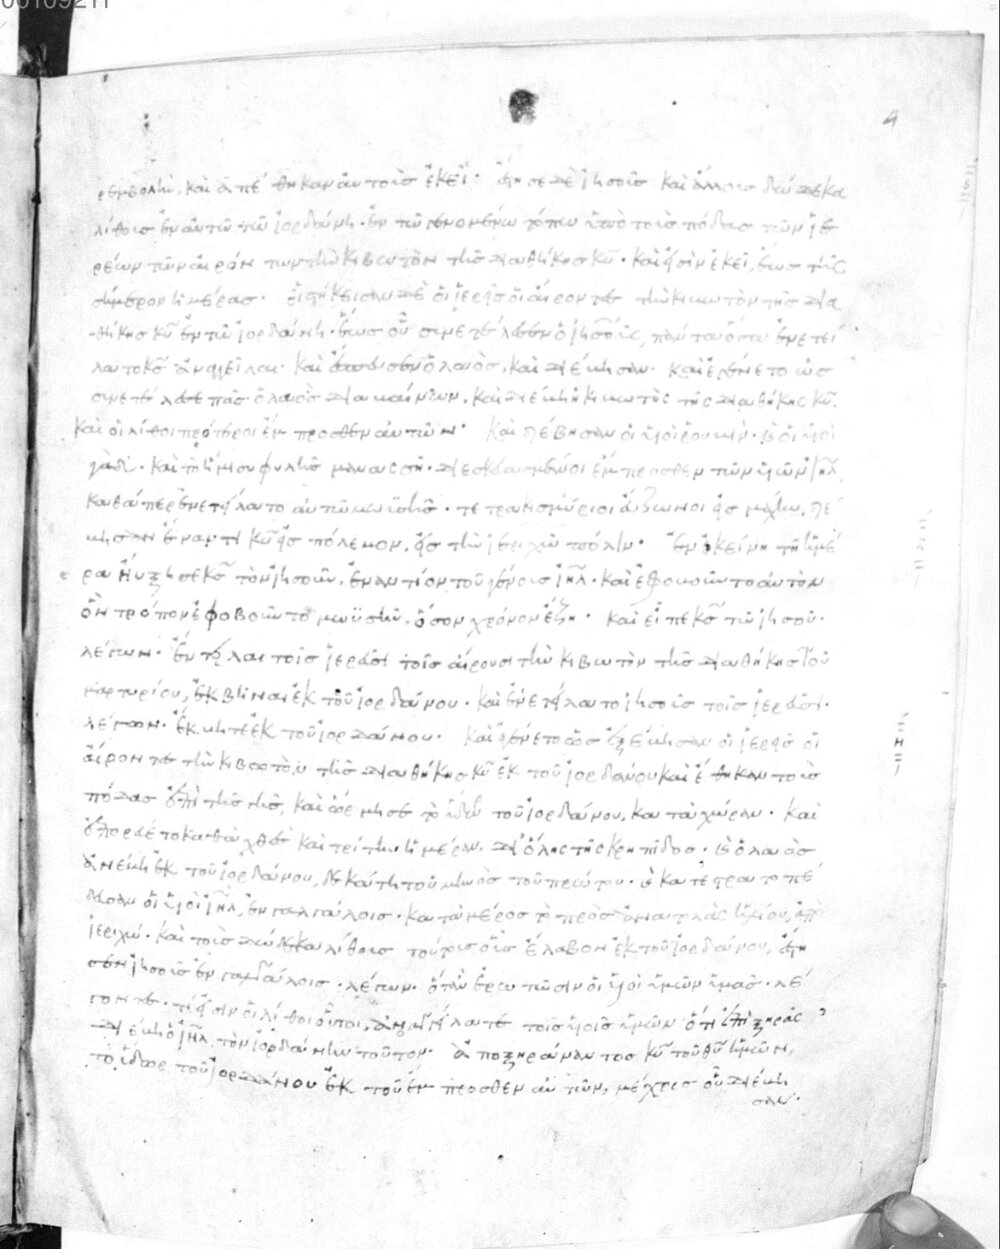 00109211
4
ρεμβολὴν, καὶ ἀπέθηκαν αὐτοῖς ἐκεῖ· ἔστησε δὲ ἰησοῦς καὶ ἄλλους δώδεκα
λίθους ἐν αὐτῶ τῶ ἰορδάνη· ἐν τῶ γενομένω τόπω ὑπὸ τοὺς πόδας τῶν ἱε
ρέων τῶν αἰρόντων τὴν κιβωτὸν τῆς διαθήκης κυ· καὶ εἰσὶν ἐκεῖ, ἕως τῆς
σήμερον ἡμέρας· εἱστήκεισαν δὲ οἱ ἱερεῖς οἱ αἴροντες τὴν κιβωτὸν τῆς δια
θήκης κυ ἐν τῶ ἰορδάνη· ἕως οὗ συνετέλεσεν ὁ ἰησοῦς, πάντα ὅσα ἐνετεί
λατο κς ἀναγγεῖλαι· καὶ ἔσπευσεν ὁ λαὸς, καὶ διέβησαν· καὶ ἐγένετο ὡς
συνετέλεσε πᾶς ὁ λαὸς διαβαίνων, καὶ διέβη ἡ κιβωτὸς τῆς διαθήκης κυ.
καὶ οἱ λίθοι πρότεροι ἔμπροσθεν αὐτῶν· καὶ διέβησαν οἱ υἱοὶ ρουβὶν· καὶ οἱ υἱοὶ
γὰδ· καὶ τὸ ἥμισυ φυλῆς μανασσῆ· διεσκευασμένοι ἔμπροσθεν τῶν υἱῶν ιηλ,
καθάπερ ἐνετείλατο αὐτοῖς μωϋσῆς· τετρακισμύριοι εὔζωνοι εἰς μάχην, διέ
βησαν ἐναντι κυ εἰς πόλεμον, εἰς τὴν ἱεριχὼ πόλιν· ἐν ἐκείνη τῆ ἡμέ
ρα ηὔξησε κς τὸν ἰησοῦν, ἐναντίον τοῦ γένους ιηλ· καὶ ἐφοβοῦντο αὐτὸν
ὃν τρόπον ἐφοβοῦντο μωϋσῆν, ὅσον χρόνον ἔζη· καὶ εἶπε κς τῶ ἰησοῦ·
λέγων· ἔντειλαι τοῖς ἱερεῦσι τοῖς αἴρουσι τὴν κιβωτὸν τῆς διαθήκης τοῦ
μαρτυρίου, ἐκβῆναι ἐκ τοῦ ἰορδάνου· καὶ ἐνετείλατο ἰησοῦς τοῖς ἱερεῦσι·
λέγων· ἔκβητε ἐκ τοῦ ἰορδάνου· καὶ ἐγένετο ὡς ἐξέβησαν οἱ ἱερεῖς οἱ
αἴροντες τὴν κιβωτὸν τῆς διαθήκης κυ ἐκ τοῦ ἰορδάνου καὶ ἔθηκαν τοὺς
πόδας ἐπὶ τῆς γῆς, καὶ ὥρμησε τὸ ὕδωρ τοῦ ἰορδάνου, κατὰ χώραν· καὶ
ἐπορεύετο καθὰ χθὲς καὶ τρίτην ἡμέραν. δι' ὅλης τῆς κρηπίδος· καὶ ὁ λαὸς
ἀνέβη ἐκ τοῦ ἰορδάνου, δεκάτη τοῦ μηνὸς τοῦ πρώτου· καὶ κατεστρατοπέ
δευσαν οἱ υἱοὶ ιηλ, ἐν γαλγάλοις· κατὰ μέρος τὸ πρὸς ἀνατολὰς ἡλίου, ἀπὸ
ἱεριχώ· καὶ τοὺς δώδεκα λίθους τούτους οὓς ἔλαβον ἐκ τοῦ ἰορδάνου, ἔστη
σεν ἰησοῦς ἐν γαλγάλοις· λέγων· ὅταν ἐρωτῶσιν οἱ υἱοὶ ὑμῶν ὑμᾶς· λέ
γοντες· τί εἰσιν οἱ λίθοι οὗτοι, ἀναγγείλατε τοῖς υἱοῖς ὑμῶν ὅτι ἐπὶ ξηρᾶς
διέβη ὁ ιηλ, τὸν ἰορδάνην τοῦτον· ἀποξηράναντος κυ τοῦ θυ ἡμῶν,
τὸ ὕδωρ τοῦ ἰορδάνου ἐκ τοῦ ἔμπροσθεν αὐτῶν, μέχρις οὗ διέβη
σαν·